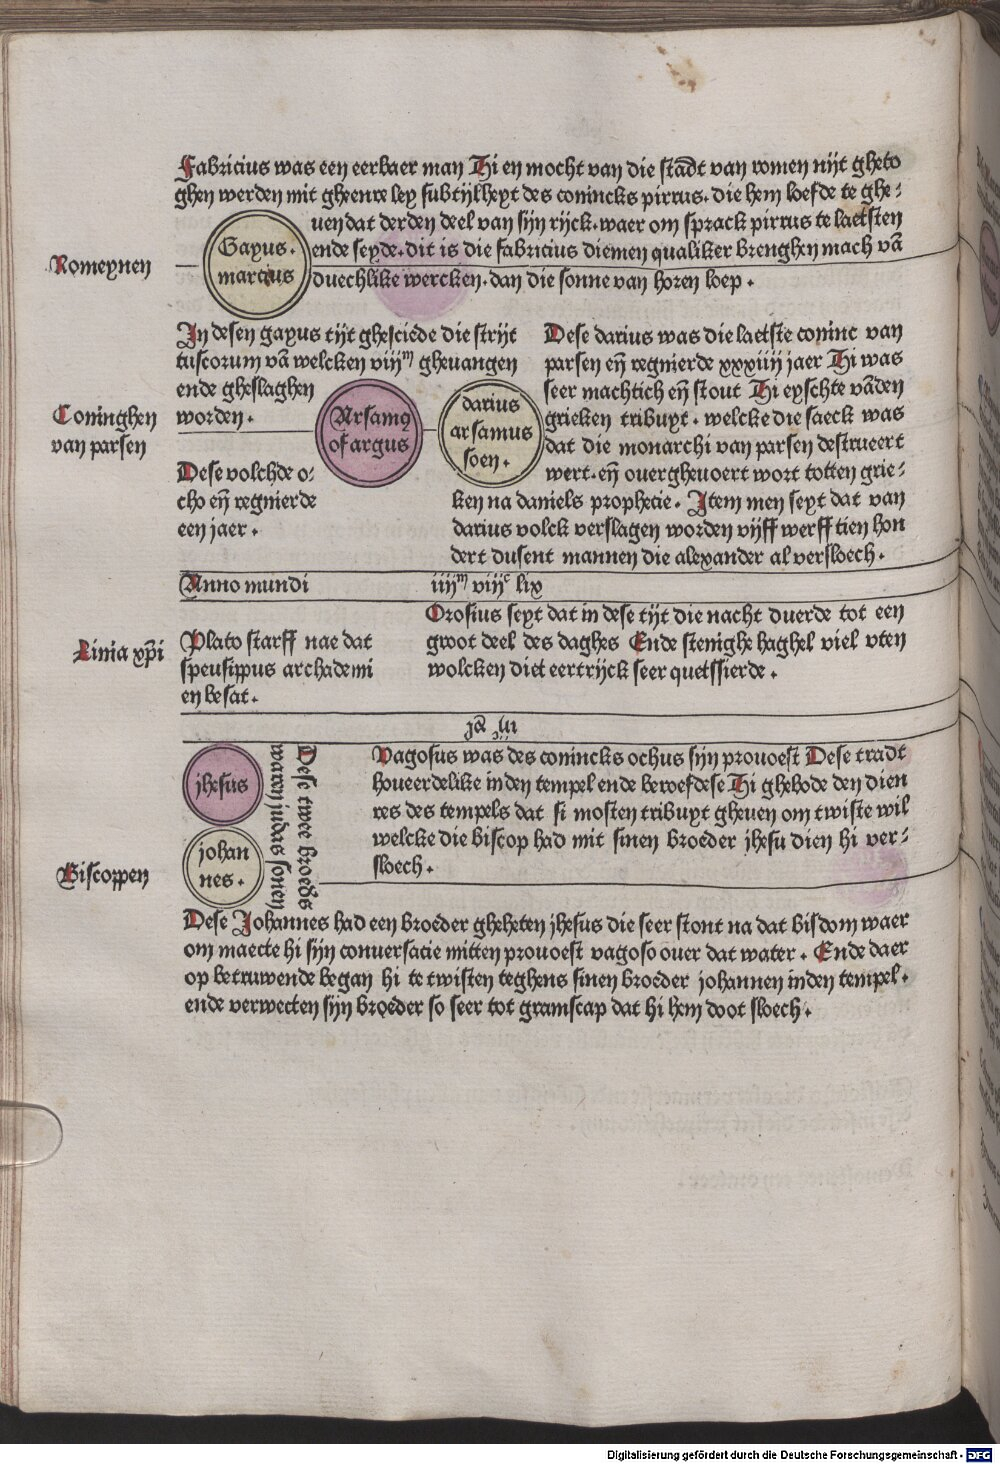 Fabricius was een eerbaer man Hi en mocht van die stadt van romen nijt gheto
ghen werden mit gheenre ley subtijlheyt des conincks pirrus. die hem loefde te ghe-
uen dat derden deel van sijn rijck. waer om sprack pirrus te laetsten
ende seyde. dit is die fabricius diemen qualiker brenghen mach vā
duechlike wercken. dan die sonne van horen loep.
Romeynen
Gayus.
marcius
In desen gayus tijt ghesciede die strijt
tuscorum vā welcken viijm gheuangen
ende gheslaghen
worden.
Coninghen
van parsen
Arsamꝯ
of argus
darius
arsamus
soen.
Dese volchde o-
cho eñ regnierde
een jaer.
Dese darius was die laetste coninc van
parsen eñ regnierde xxxiiij jaer Hi was
seer machtich eñ stout Hi eyschte vāden
grieken tribuyt. welcke die saeck was
dat die monarchi van parsen destrueert
wert. eñ ouergheuoert wort totten grie-
ken na daniels prophecie. Item men seyt dat van
darius volck verslagen worden vijff werff tien hon
dert dusent mannen die alexander al versloech.
Anno mundi iiijm viijc lix
Linia xp̄i
Plato starff nae dat
speusippus archademi
en besat.
Orosius seyt dat in dese tijt die nacht duerde tot een
groot deel des daghes Ende stenighe haghel viel vten
wolcken diet eertrijck seer quetssierde.
Biscoppen
jhesus
johan
nes.
Dese twee broeders
waren judas sonen
Vagosus was des conincks ochus sijn prouoest Dese tradt
houeerdelike inden tempel ende beroefdese Hi ghebode den dien
res des tempels dat si mosten tribuyt gheuen om twiste wil
welcke die biscop had mit sinen broeder jhesu dien hi ver-
sloech.
Dese Johannes had een broeder gheheten jhesus die seer stont na dat bisdom waer
om maecte hi sijn conuersacie mitten prouoest vagoso ouer dat water. Ende daer
op betruwende began hi te twisten teghens sinen broeder johannen inden tempel.
ende verwecten sijn broeder so seer tot gramscap dat hi hem doot sloech.
Digitalisierung gefördert durch die Deutsche Forschungsgemeinschaft - DFG